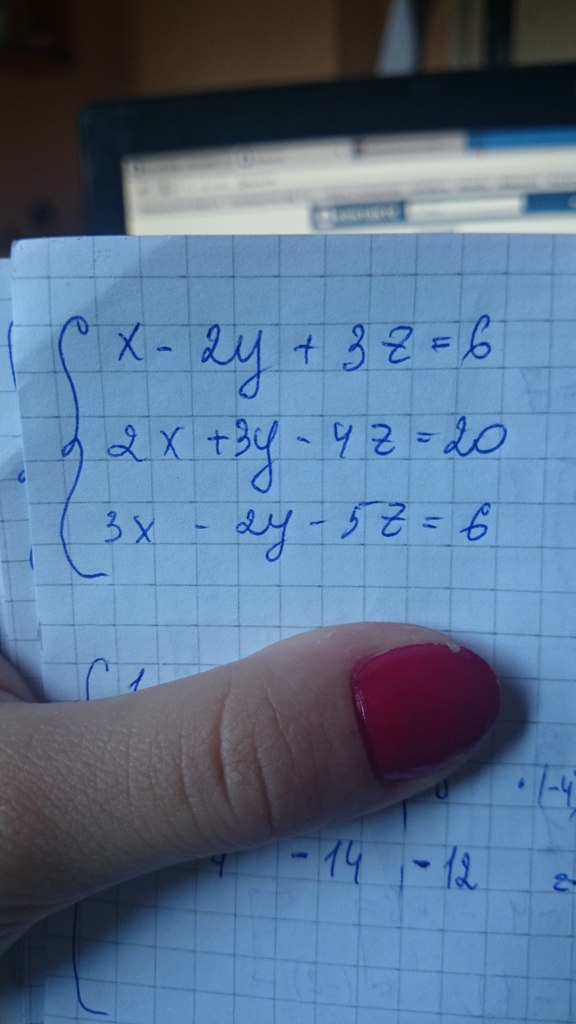 x - 2y + 3z = 6
2x + 3y - 4z = 20
3x - 2y - 5z = 6
1
· (-4)
4 -14 | -12